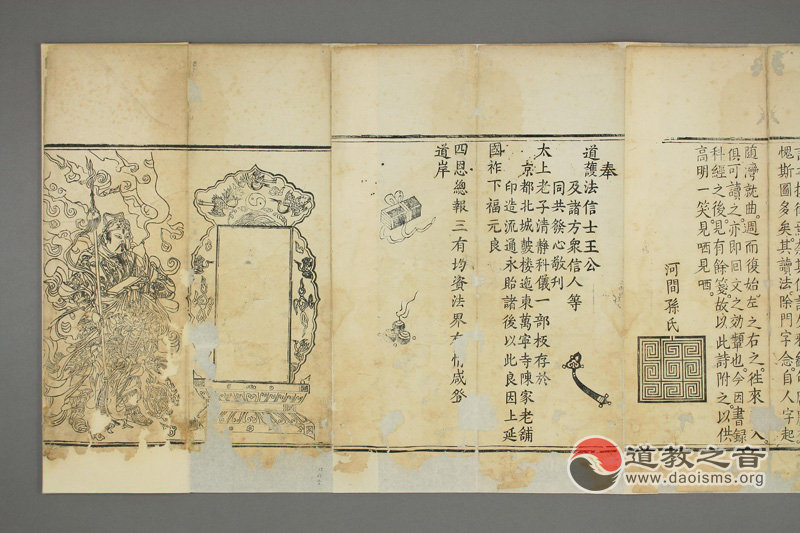 愧斯圖多矣。其讀法除門字念。自人字起
隨灣就曲。週而復始。左之右之。往來入。
俱可讀之。亦即回文之効顰也。今因書録
科經之後。見有餘箋。故以此詩附之以供
高明一笑。見哂見哂。
河間孫氏
奉
道護法信士王公
及諸方衆信人等
同共發心敬刋
太上老子清靜科儀一部板存於
京都北城皷樓迤東萬寧寺陳家老舖
印造流通永貽諸後以此良因上延
國祚下福元良
四恩總報三有均資法界有情咸登
道岸
道教之音
www.daoisms.org